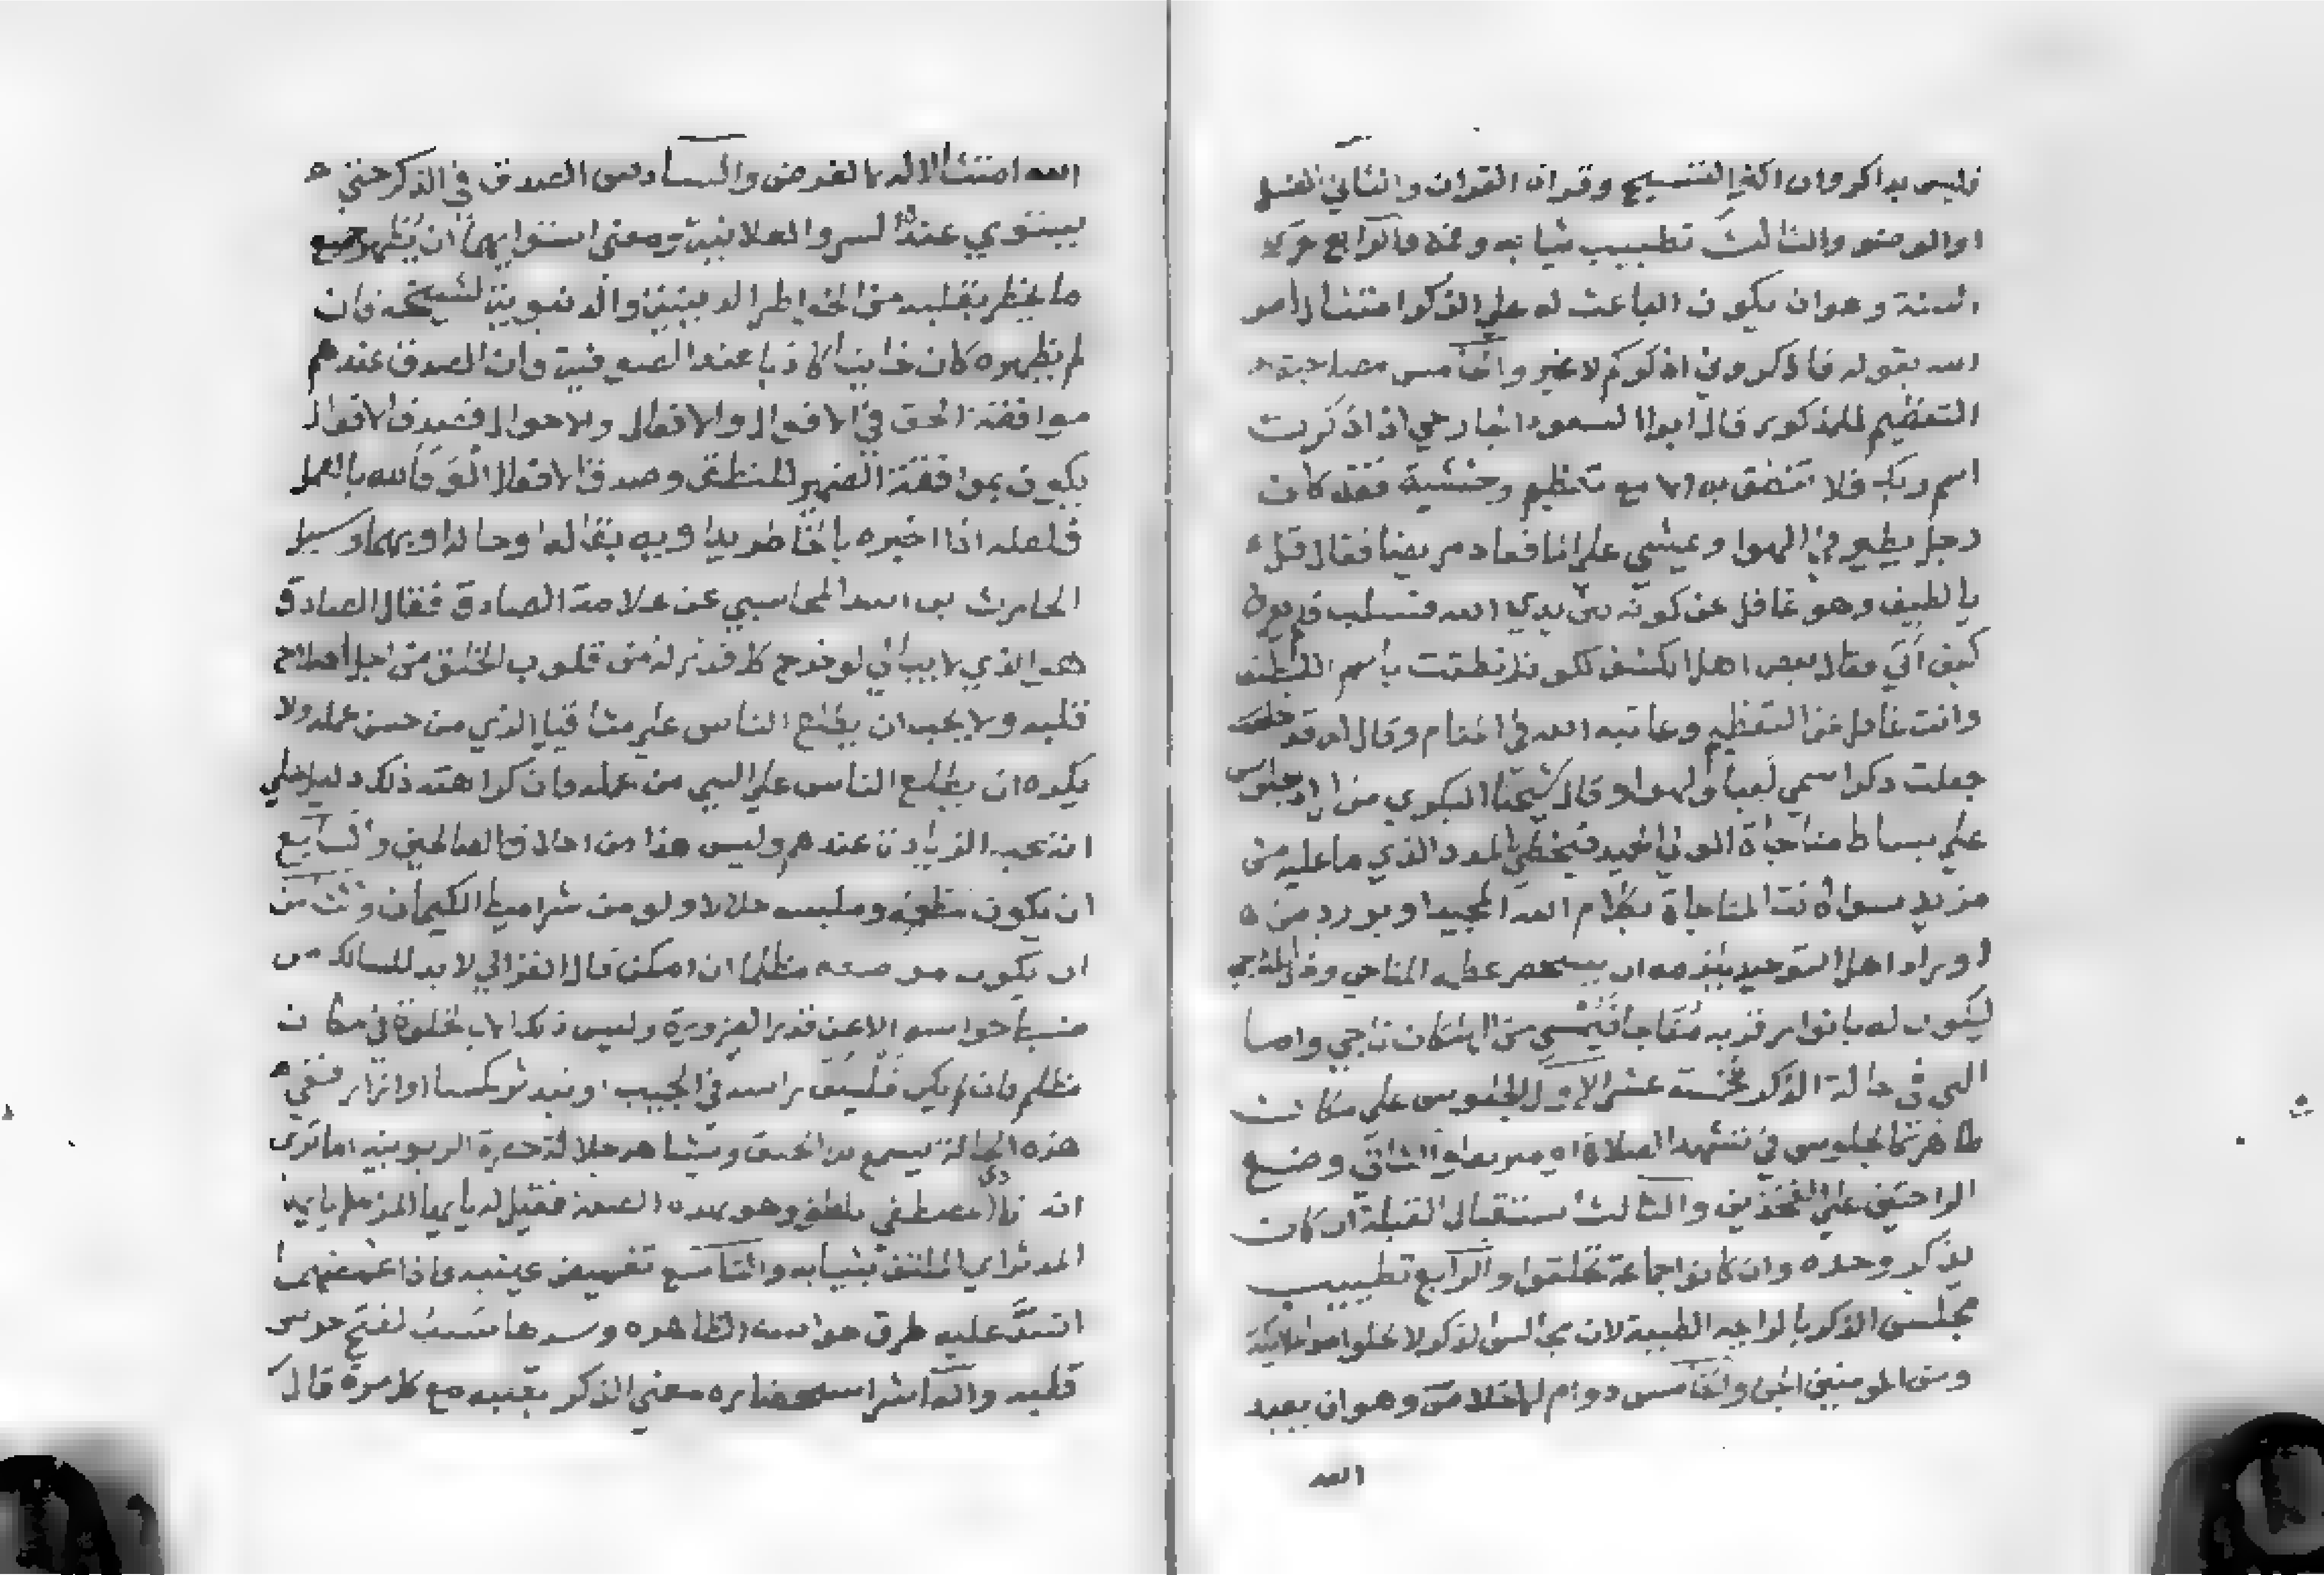 فليس بذاكر وان اكثر التسبيح وقراة القران والثاني الغسل
او الوضو والثالث تطييب ثيابه وفمه والرابع حركة
الله بقوله فاذكروني اذكركم لا غير والخامس مصاحبة
التعظيم للمذكور قال ابوا السعود الجارحي اذا ذكرت
اسم ربك فلا تنطق به الا مع تعظيم وخشية فقد كان
رجل يطير في الهوا ويمشي علي الما فعاد مريضا فقال قل
يا لطيف وهو غافل عن كونه بين يدي الله فسلب فلم يعرف
كيف أتي فقال بعض اهل الكشف لكونك نطقت باسم اللطيف
وانت غافل عن التعظيم وعاتبه الله في المنام وقال له قد
جعلت ذكر اسمي لعبا ولهوا وقال شيخنا البكري من اراد جلوس
علي بساط مناجاة الولي الحميد فيحظي بالمدد الذي ما عليه من
مزيد سوا كانت المناجاة بكلام الله المجيد او بورد من
اوراد اهل التوحيد يلزمه ان يستحضر عظمة المناجي وذل المناجي
ليكون له بانوار قربه مفاجا فيمسي من الهلكات ناجي واما
التي في حالة الذكر فخمسة عشر الاول الجلوس علي مكان
طاهر كالجلوس في تشهد الصلاة او متربعا والثاني وضع
الراحتين علي الفخذين والثالث استقبال القبلة ان كان
يذكر وحده وان كانوا جماعة تحلقوا والرابع تطييب
مجلس الذكر بالرايحة الطيبة لان مجالس الذكر لا تخلوا من الملايكة
ومن المومنين الجن والخامس دوام الاخلاص وهو ان يعبد
الله
الله امتثالا لا لغرض والسادس الصدق في الذكر حتي
يستوي عنده السر والعلانية ومعني استوايهما ان يظهر جميع
ما يخطر بقلبه من الخواطر الدينية والدنيوية لشيخه فان
لم يظهره كان خاينا كاذبا عند الصوفية وان الصدق عندهم
موافقة الحق في الاقوال والافعال والاحوال فصدق الاقوال
يكون بموافقة الضمير للمنطق وصدق الافعال الوفا لله بالعمل
فلعله اذا اخبره بالخاطر يداويه بقاله او حاله او بهما وسيل
الحارث بن اسد المحاسبي عن علامة الصادق فقال الصادق
هو الذي لا يبالي لو خرج كل قدر له من قلوب الخلق من اجل اصلاح
قلبه ولا يحب ان يطلع الناس علي مثاقيل الذر من حسن عمله ولا
يكره ان يطلع الناس علي السي من عمله فان كراهته ذلك دليل علي
انه يحب الزيادة عندهم وليس هذا من اخلاق الصالحين والسابع
ان يكون مطعمه وملبسه حلالا ولو من شراميط الكيمان والثامن
ان يكون موضعه مظلما ان امكن قال الغزالي لا بد للسالك من
ضبط حواسه الا عن قدر الضرورة وليس ذلك الا بالخلوة في مكان
مظلم فان لم يكن فليلف راسه في الجيب او يتدثر بكسا او ازار ففي
هذه الحالة يسمع ندا الحق ويشاهد جلال حضرة الربوبية اما تري
ان ندا المصطفي بلغه وهو بهذه الصفة فقيل له يايها المزمل يايها
المدثر اي الملتف بثيابه والتاسع تغميض عينيه فاذا غمضهما
انسد عليه طرق حواسه الظاهره وسدها سبب لفتح حواس
قلبه والعاشر استحضاره معني الذكر بقلبه مع كل مرة قال